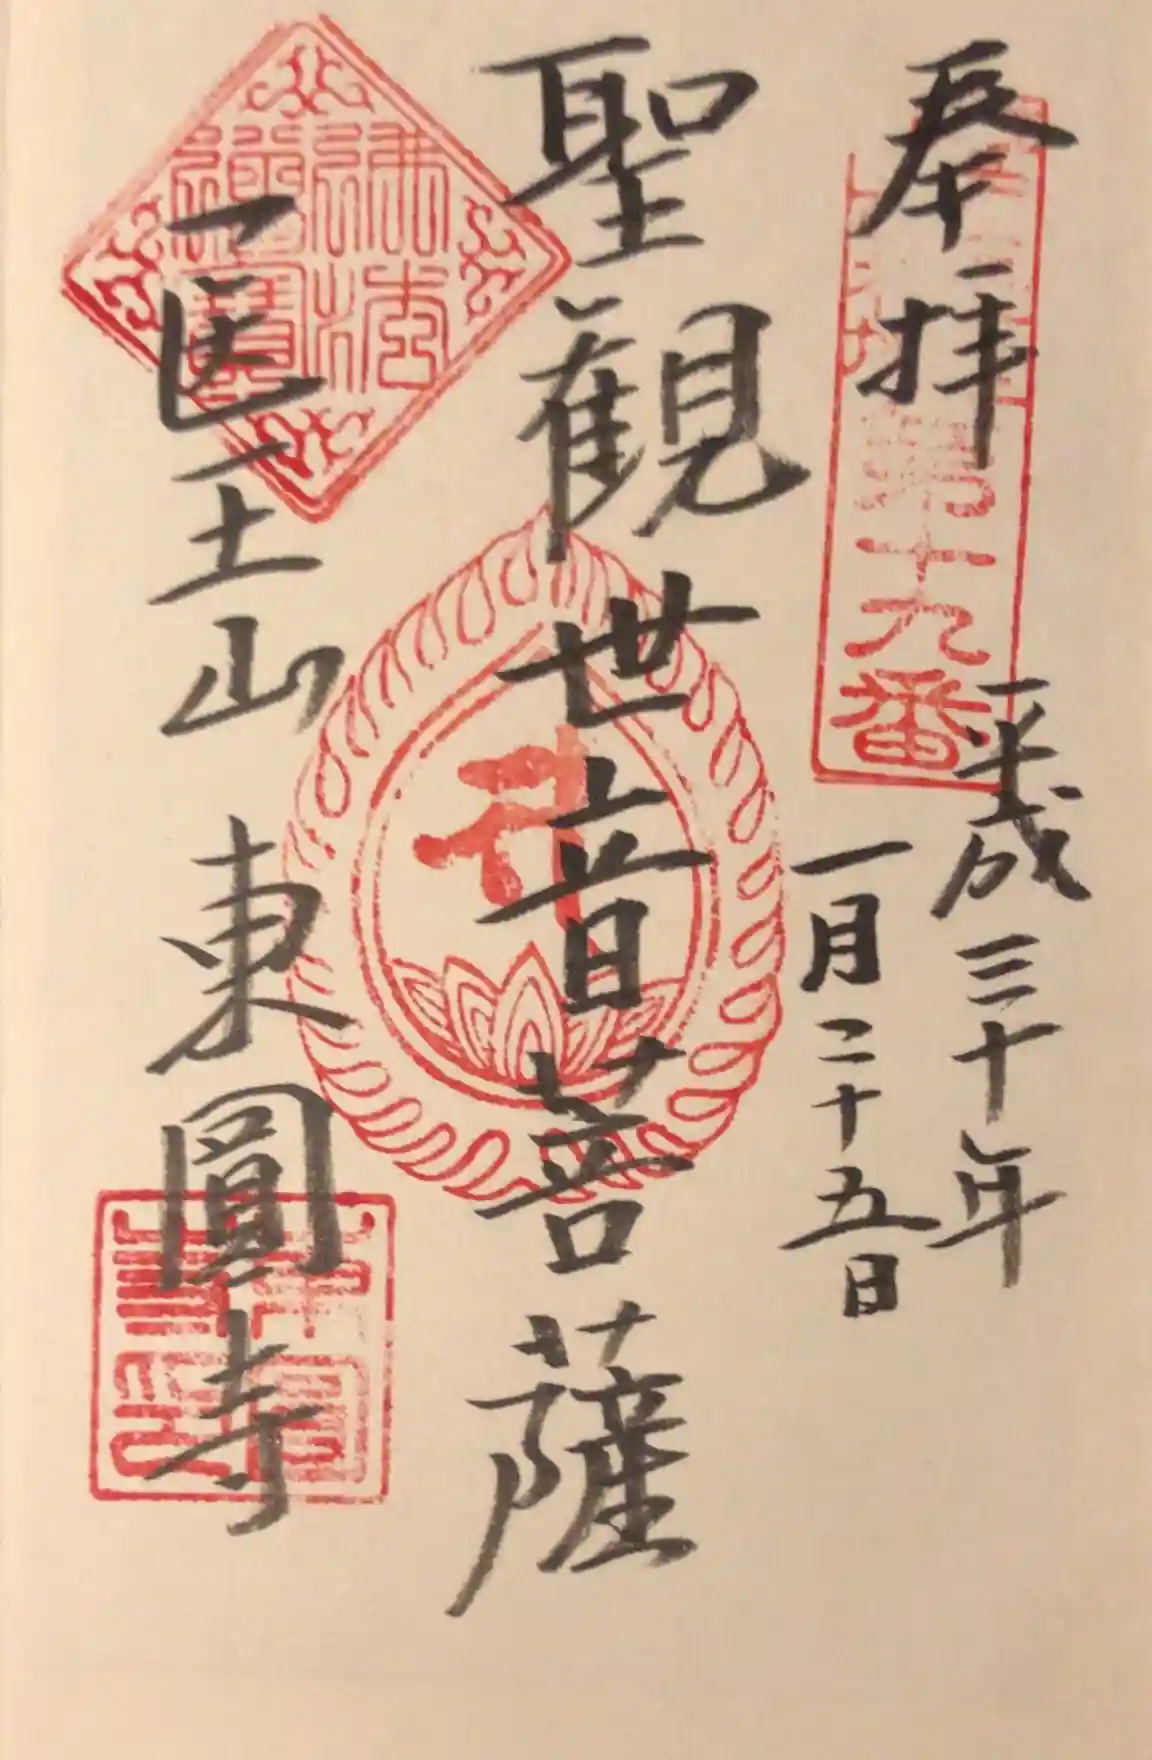 奉拝
第十九番
平成三十年
一月二十五日
聖観世音菩薩
佛法
僧寶
医王山 東圓寺